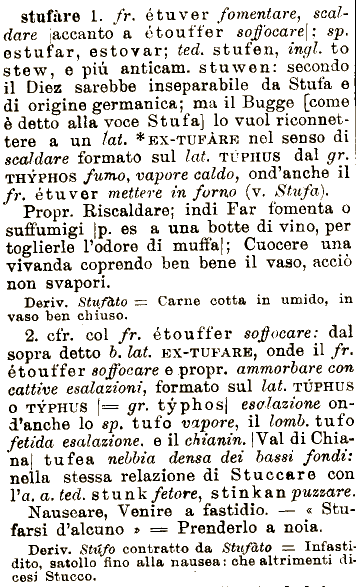 stufàre 1. fr. étuver fomentare, scal-
dare |accanto a étouffer soffocare|: sp.
estufar, estovar; ted. stufen, ingl. to
stew, e piú anticam. stuwen: secondo
il Diez sarebbe inseparabile da Stufa e
di origine germanica; ma il Bugge [come
è detto alla voce Stufa] lo vuol riconnet-
tere a un lat. *EX-TUFÀRE nel senso di
scaldare formato sul lat. TÚPHUS dal gr.
THÝPHOS fumo, vapore caldo, ond'anche il
fr. étuver mettere in forno (v. Stufa).
Propr. Riscaldare; indi Far fomenta o
suffumigi |p. es a una botte di vino, per
toglierle l'odore di muffa|; Cuocere una
vivanda coprendo ben bene il vaso, acciò
non svapori.
Deriv. Stufàto = Carne cotta in umido, in
vaso ben chiuso.
2. cfr. col fr. étouffer soffocare: dal
sopra detto b. lat. EX-TUFARE, onde il fr.
étouffer soffocare e propr. ammorbare con
cattive esalazioni, formato sul lat. TÚPHUS
o TÝPHUS |= gr. týphos| esalazione on-
d'anche lo sp. tufo vapore, il lomb. tufo
fetida esalazione. e il chianin. |Val di Chia-
na| tufea nebbia densa dei bassi fondi:
nella stessa relazione di Stuccare con
l'a. a. ted. stunk fetore, stinkan puzzare.
Nauseare, Venire a fastidio. — « Stu-
farsi d'alcuno » = Prenderlo a noia.
Deriv. Stúfo contratto da Stufàto = Infasti-
dito, satollo fino alla nausea: che altrimenti di-
cesi Stucco.